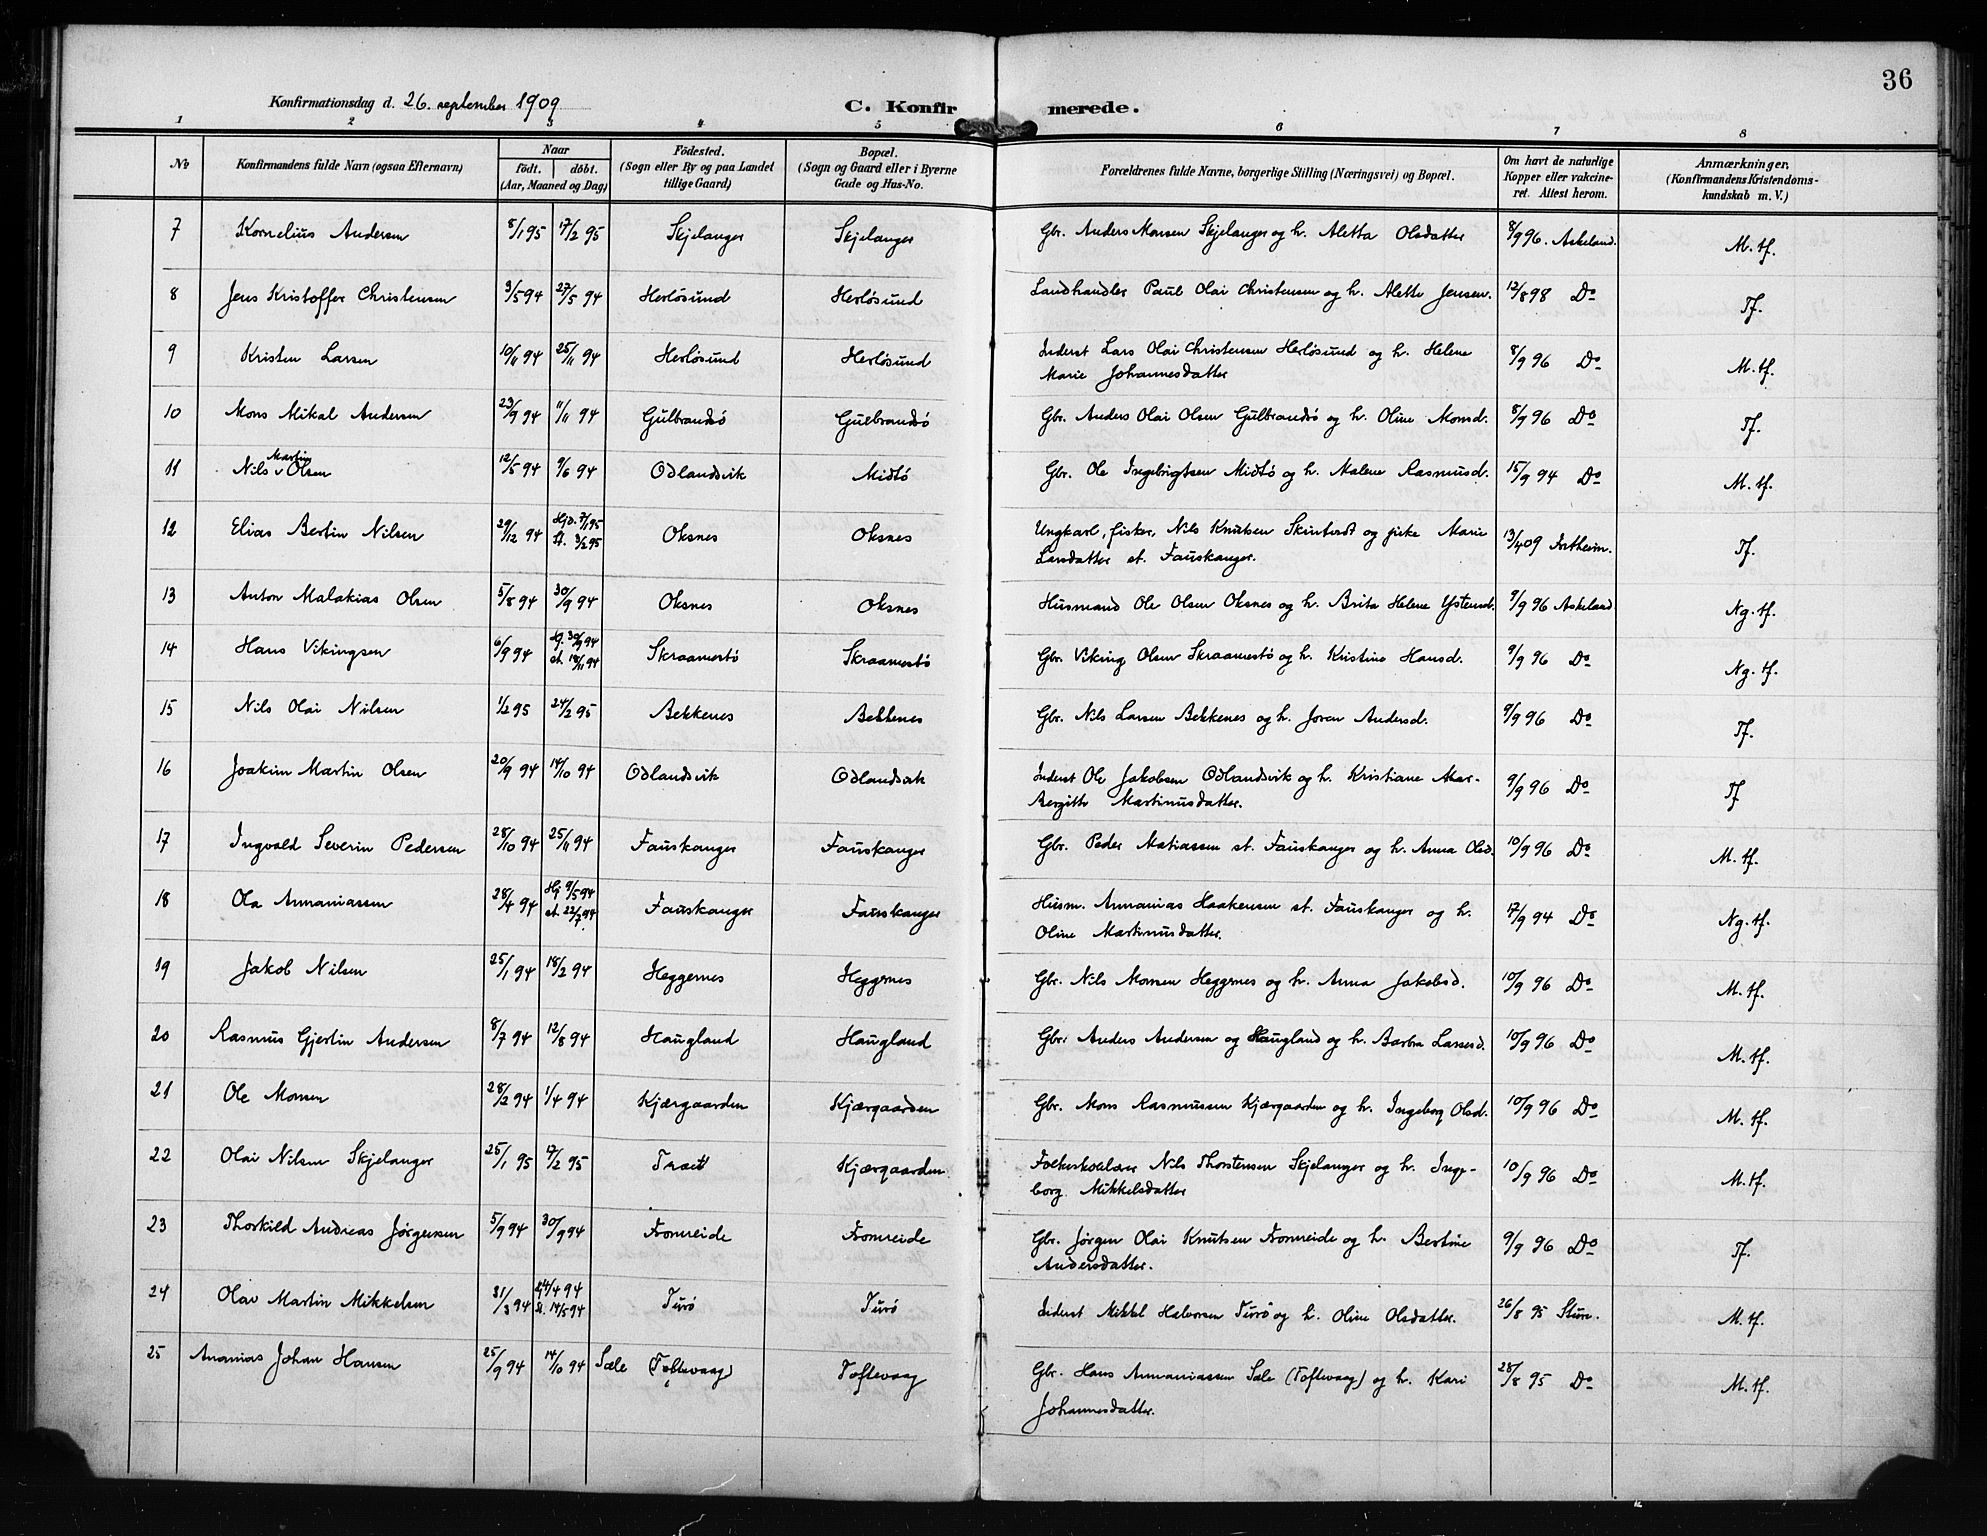 36
Konfirmationsdag d. 26. september 1909
C. Konfirmerede.
1 2 3 4 5 6 7 8
No
Konfirmandens fulde Navn (ogsaa Efternavn)
Naar
født. døbt.
(Aar, Maaned og Dag)
Födested.
(Sogn eller By og paa Landet
tillige Gaard)
Bopæl.
(Sogn og Gaard eller i Byerne
Gade og Hus-No.
Forældrenes fulde Navne, borgerlige Stilling (Næringsvei) og Bopæl.
Om havt de naturlige
Kopper eller vakcine-
ret. Attest herom.
Anmærkninger.
(Konfirmandens Kristendoms-
kundskab m. V.)
7 Kornelius Andersen 8/1 95 17/2 95 Skjelanger Skjelanger Gbr. Anders Monsen Skjelanger og h. Aletta Olsdatter 8/9 96. Askeland. M. tf.
8 Jens Kristoffer Christensen 3/5 94 27/5 94 Herløsund Herløsund Landhandler Paul Olai Christensen og h. Alette Jensen. 12/8 98 Do Tf.
9 Kristen Larsen 10/11 94 25/11 94 Herløsund Herløsund Inderst Lars Olai Christensen Herløsund og h. Helene
Marie Johannesdatter 8/9 96 Do M. tf.
10 Mons Mikal Andersen 23/9 94 11/11 94 Gulbrandsö Gulbrandsö Gbr. Anders Olai Olsen Gulbrandsö og h. Oline Monsd. 8/9 96 Do Tf.
11 Nils Martin Olsen 12/5 94 9/6 94 Odlandsvik Midtö Gbr. Ole Ingebrigtsen Midtö og h. Malene Rasmusd. 15/9 94 Do M. tf.
12 Elias Bertin Nilsen 29/12 94 Hjd. 7/1 95
st. 3/2 95 Oksnes Oksnes Ungkarl, fisker, Nils Knutsen og pike Marie
Larsdatter st. Fauskanger. 13/4 09 Tf.
13 Anton Malakias Olsen 5/8 94 30/9 94 Oksnes Oksnes Husmand Ole Olsen Oksnes og h. Brita Helene 9/9 96 Askeland Ng. tf.
14 Hans Vikingsen 6/9 94 Hj. 30/9 94
st. 18/11 94 Skraamestö Skraamestö Gbr. Viking Olsen Skraamestö og h. Kristine Hansd. 9/9 96 Do Ng. tf.
15 Nils Olai Nilsen 1/2 95 24/2 95 Bekkenes Bekkenes Gbr. Nils Larsen Bekkenes og h. Joran Andersd. 9/9 96 Do Tf.
16 Joakim Martin Olsen 20/9 94 14/10 94 Odlandsvik Odlandsvik Inderst Ole Jakobsen Odlandsvik og h. Kristiane
Bergitte Martinusdatter. 9/9 96 Do Tf
17 Ingvald Severin Pedersen 28/10 94 25/11 94 Fauskanger Fauskanger Gbr. Peder Matiassen st. Fauskanger og h. Anna Olsd. 10/9 96 Do M. tf.
18 Ola Annaniassen 28/4 94 Hj 9/5 94
st. 22/7 94 Fauskanger Fauskanger Husm. Annanias Haakensen st. Fauskanger og h.
Oline Martinusdatter. 17/9 94 Do Ng. tf.
19 Jakob Nilsen 25/1 94 18/2 94 Heggernes Heggernes Gbr. Nils Monsen Heggernes og h. Anna Jakobsd. 10/9 96 Do M. tf.
20 Rasmus Gjertin Andersen 8/7 94 12/8 94 Haugland Haugland Gbr. Anders Andersen og Haugland og h. Barbra Larsesd. 10/9 96 Do M. tf.
21 Ole Monsen 28/2 94 1/4 94 Kjærgaarden Kjærgaarden Gbr. Mons Rasmussen Kjærgaarden og h. Ingeborg Olsd. 10/9 96 Do M. tf.
22 Olai Nilsen Skjelanger 25/1 95 17/2 95 Træet Kjærgaarden Folkeskolelærer Nils Thorstensen Skjelanger og h. Inge-
borg Mikkelsdatter 10/9 96 Do M. tf.
23 Thorkild Andreas Jørgensen 5/9 94 30/9 94 Fromreide Fromreide Gbr. Jørgen Olai Knutsen Fromreide og h. Bertine
Andersdatter. 9/9 96 Do Tf.
24 Olai Martin Mikkelsen 31/3 94 24/4 94
st. 14/5 94 Turö Turö Inderst Mikkel Halvorsen Turö og h. Oline Olsdatter. 26/8 95 Sture. M. tf.
25 Ananias Johan Hansen 25/9 94 14/10 94 Sæle (Toftevaag) Toftevaag Gbr. Hans Annaniassen Sæle (Toftevaag) og h. Kari
Johannesdatter. 28/8 95 Do M. tf.